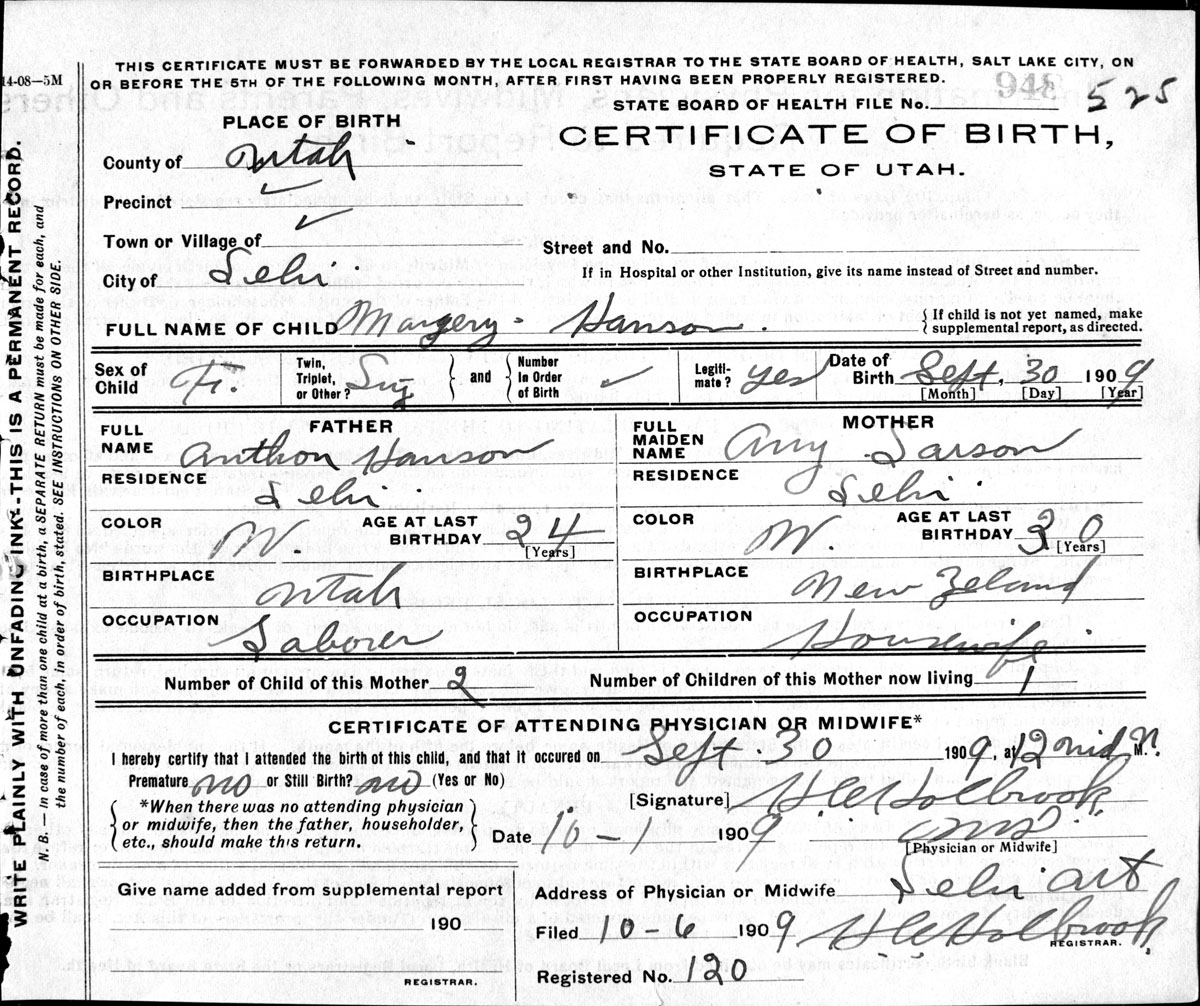 14-08—5M
THIS CERTIFICATE MUST BE FORWARDED BY THE LOCAL REGISTRAR TO THE STATE BOARD OF HEALTH, SALT LAKE CITY, ON
OR BEFORE THE 5TH OF THE FOLLOWING MONTH, AFTER FIRST HAVING BEEN PROPERLY REGISTERED.
STATE BOARD OF HEALTH FILE No. 948 525
PLACE OF BIRTH
CERTIFICATE OF BIRTH,
STATE OF UTAH.
County of Utah
Precinct ✓
Town or Village of ✓
Street and No.
City of Lehi
If in Hospital or other Institution, give its name instead of Street and number.
FULL NAME OF CHILD Margery Hanson. {If child is not yet named, make supplemental report, as directed.
Sex of Child F. Twin, Triplet, or Other? Sing } and { Number in Order of Birth ✓ Legiti-mate? yes Date of Birth Sept, 30 1909
[Month] [Day] [Year]
FATHER
FULL NAME Anthon Hanson
RESIDENCE Lehi
COLOR W. AGE AT LAST BIRTHDAY 24 [Years]
BIRTHPLACE Utah
OCCUPATION Laborer
MOTHER
FULL MAIDEN NAME Amy Larson
RESIDENCE Lehi
COLOR W. AGE AT LAST BIRTHDAY 30 [Years]
BIRTHPLACE New Zeland
OCCUPATION Housewife
Number of Child of this Mother 2 Number of Children of this Mother now living 1
CERTIFICATE OF ATTENDING PHYSICIAN OR MIDWIFE*
I hereby certify that I attended the birth of this child, and that it occured on Sept 30 1909, at 12 mid N. M.
Premature no or Still Birth? no (Yes or No)
[Signature] Holbrook
*When there was no attending physician
or midwife, then the father, householder,
etc., should make this return.
Date 10-1 1909
[Physician or Midwife]
Give name added from supplemental report
190
REGISTRAR.
Address of Physician or Midwife Lehi
Filed 10-6 1909 Holbrook
REGISTRAR.
Registered No. 120
WRITE PLAINLY WITH UNFADING INK--THIS IS A PERMANENT RECORD.
N. B.—In case of more than one child at a birth, a SEPARATE RETURN must be made for each, and
the number of each, in order of birth, stated. SEE INSTRUCTIONS ON OTHER SIDE.